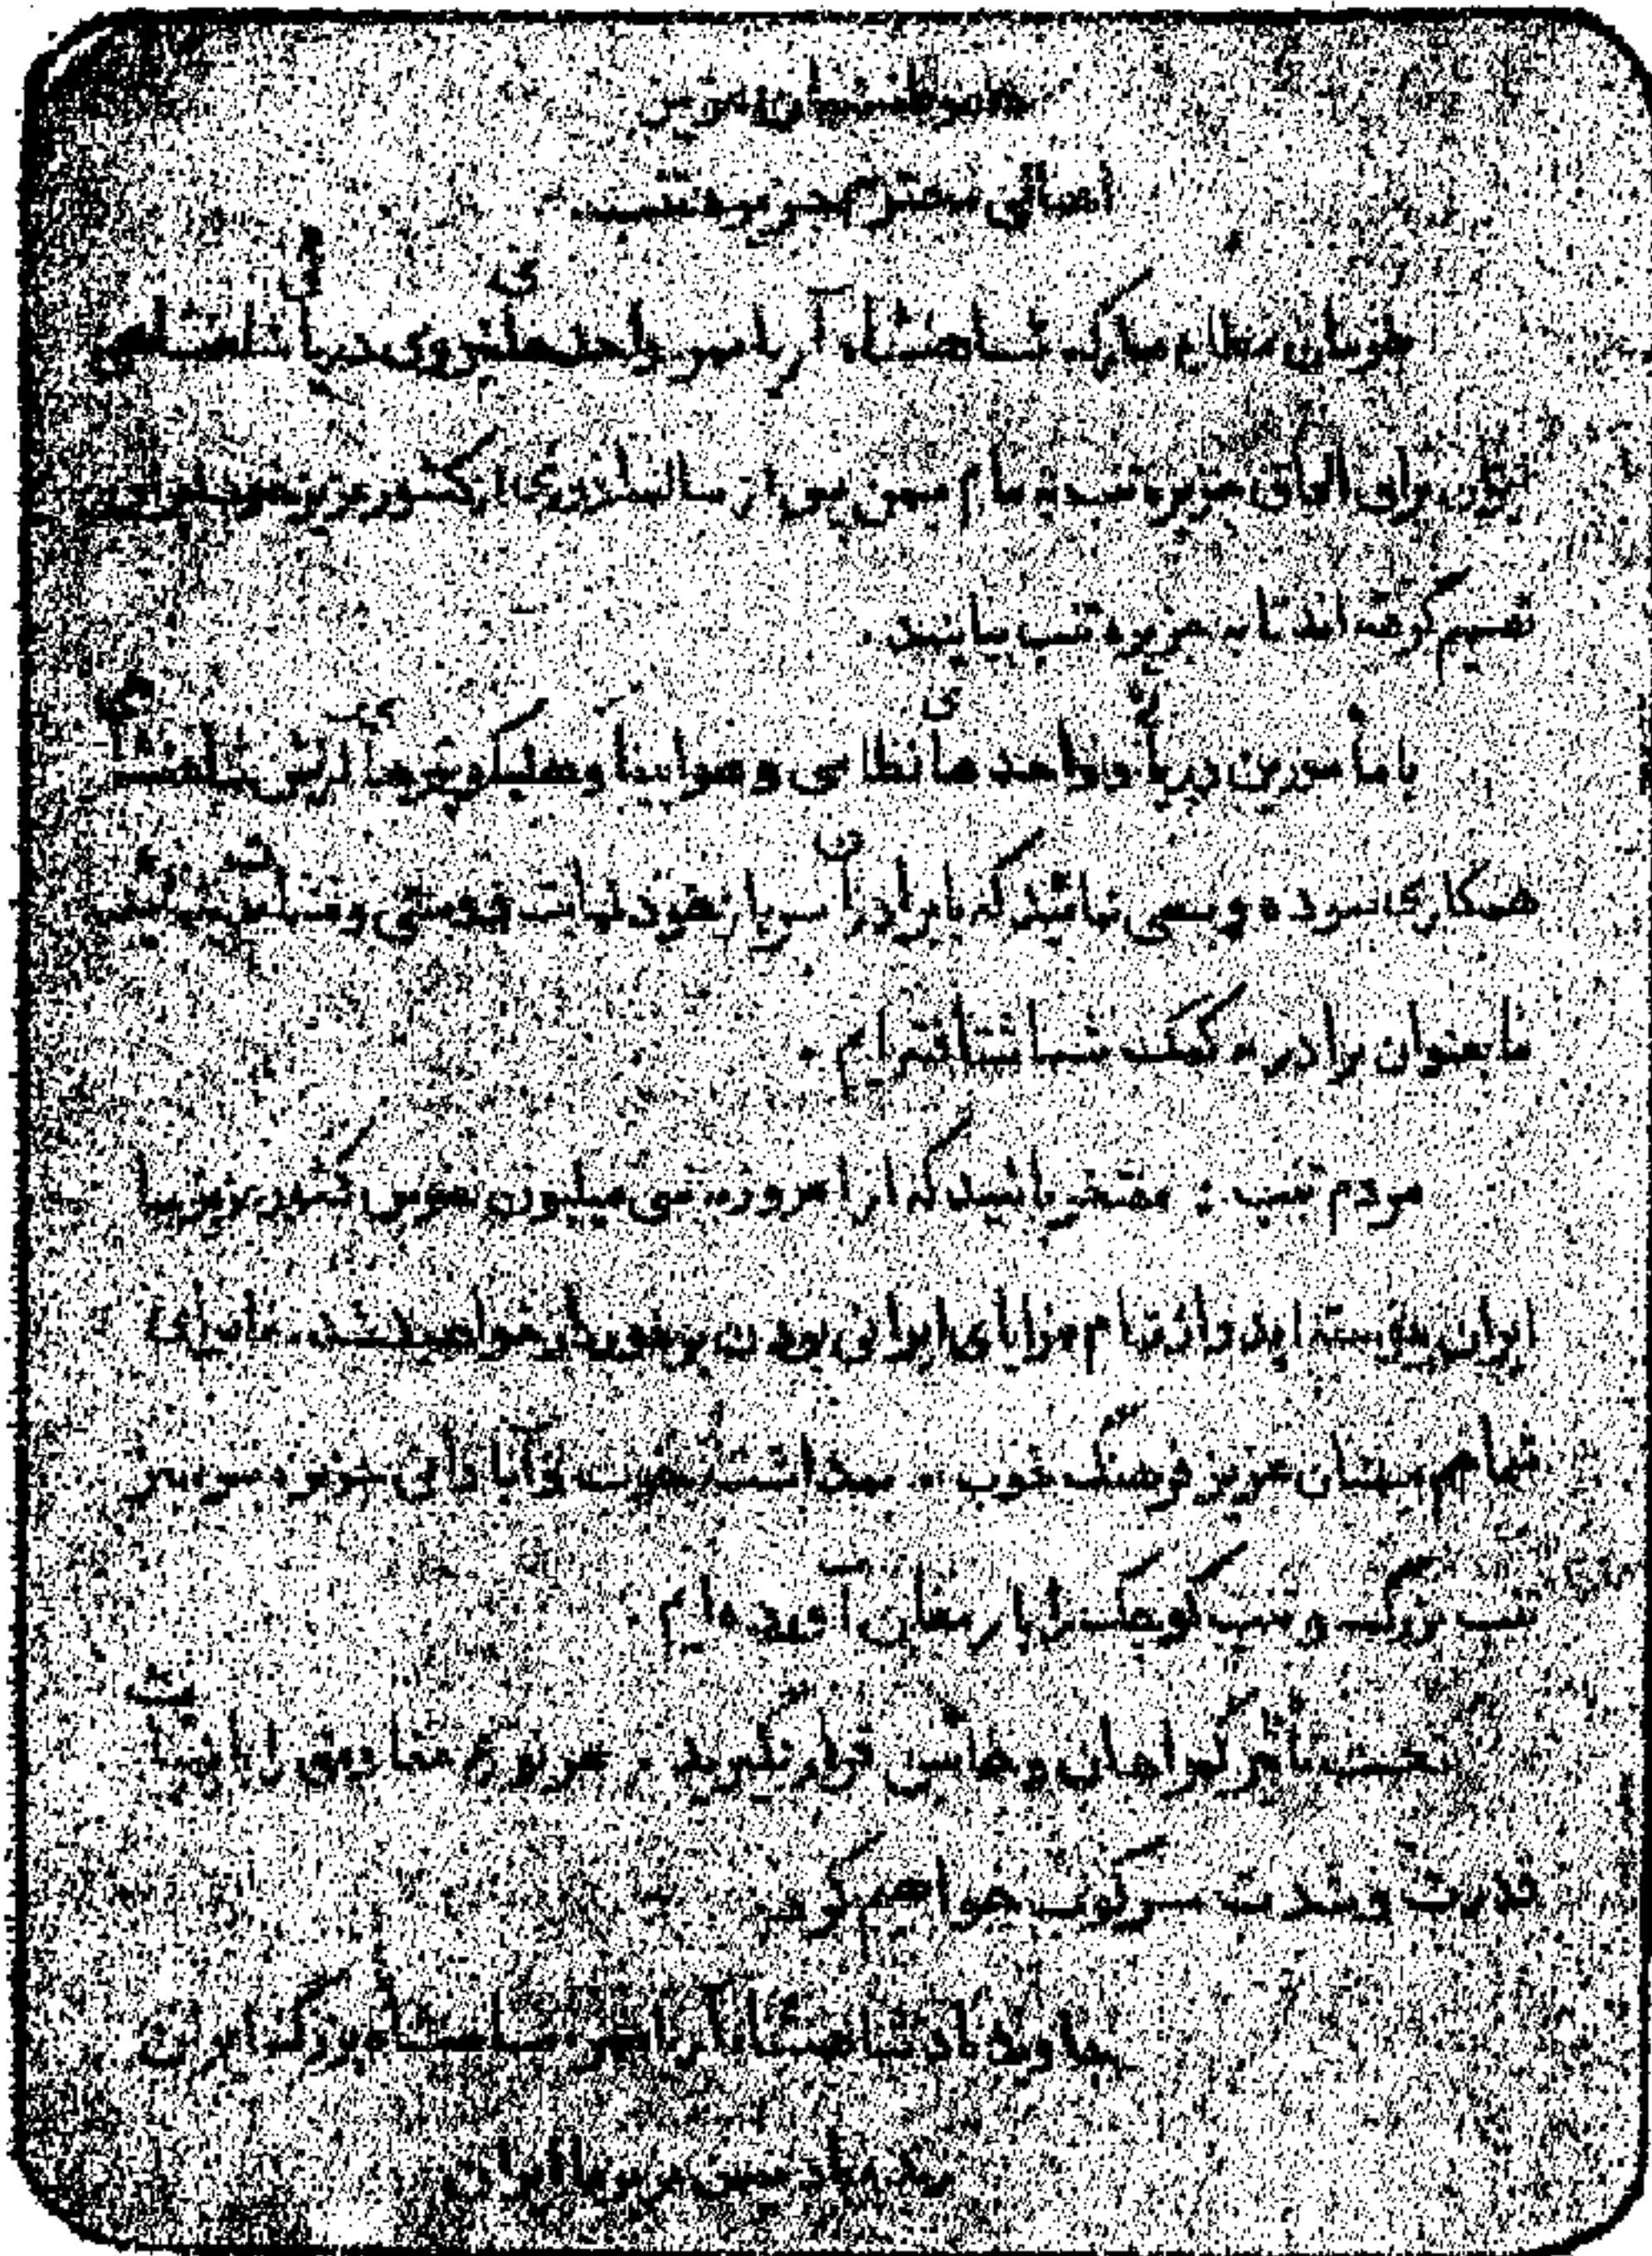 هم وطنان عزیز
اهالی محترم جزیره تنب
بفرمان مطاع مبارک شاهنشاه آریامهر واحدهای نیروی دریائی شاهنشاهی
ایران برای الحاق جزیره تنب به مام میهن پس از سالها دوری از کشور عزیز
تصمیم گرفته اند تا به جزیره تنب بیایند .
با مأمورین دریائی و واحدهای نظامی و هواپیما و هلیکوپترهای ارتش شاهنشاهی
همکاری نموده و سعی نمائید که با برادران سرباز خود نهایت دوستی و
ما بعنوان برادر به کمک شما شتافته ایم .
مردم تنب : مفتخر باشید که از امروز به سی میلیون نفوس کشور عزیز ما
ایران پیوسته اید و از تمام مزایای ایرانی بودن برخوردار خواهید شد . ما برای
شما هم میهنان عزیز فرهنگ خوب .. بهداشت خوب و آبادانی جزیره سرسبز
تنب بزرگ و تنب کوچک را بارمغان آورده ایم .
تحت تأثیر گمراهان و خائنین قرار نگیرید . هر نوع مقاومتی را با نهایت
قدرت و شدت سرکوب خواهیم کرد
جاوید باد شاهنشاه آریامهر شاهنشاه بزرگ ایران
زنده باد میهن عزیز ما ایران